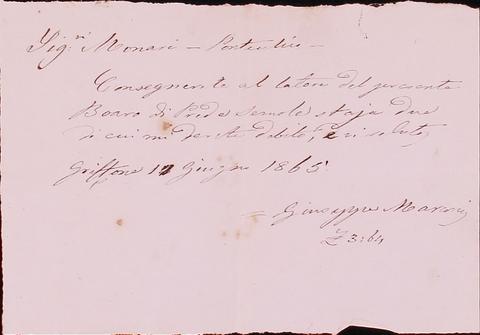 Sig.ri Monari - Pontecchio -
Consegnerete al latore del presente
Boaro di Prede Semole staja due
di cui mi darete debito, e vi saluto,
Griffone 17 Giugno 1865.
= Giuseppe
£ 3:64